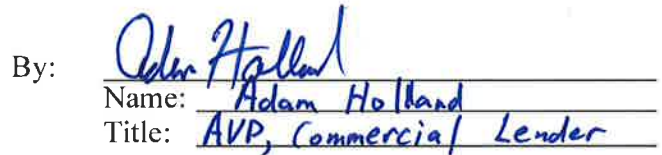 By: Adam Holland
Name: Adam Holland
Title: AVP, Commercial Lender